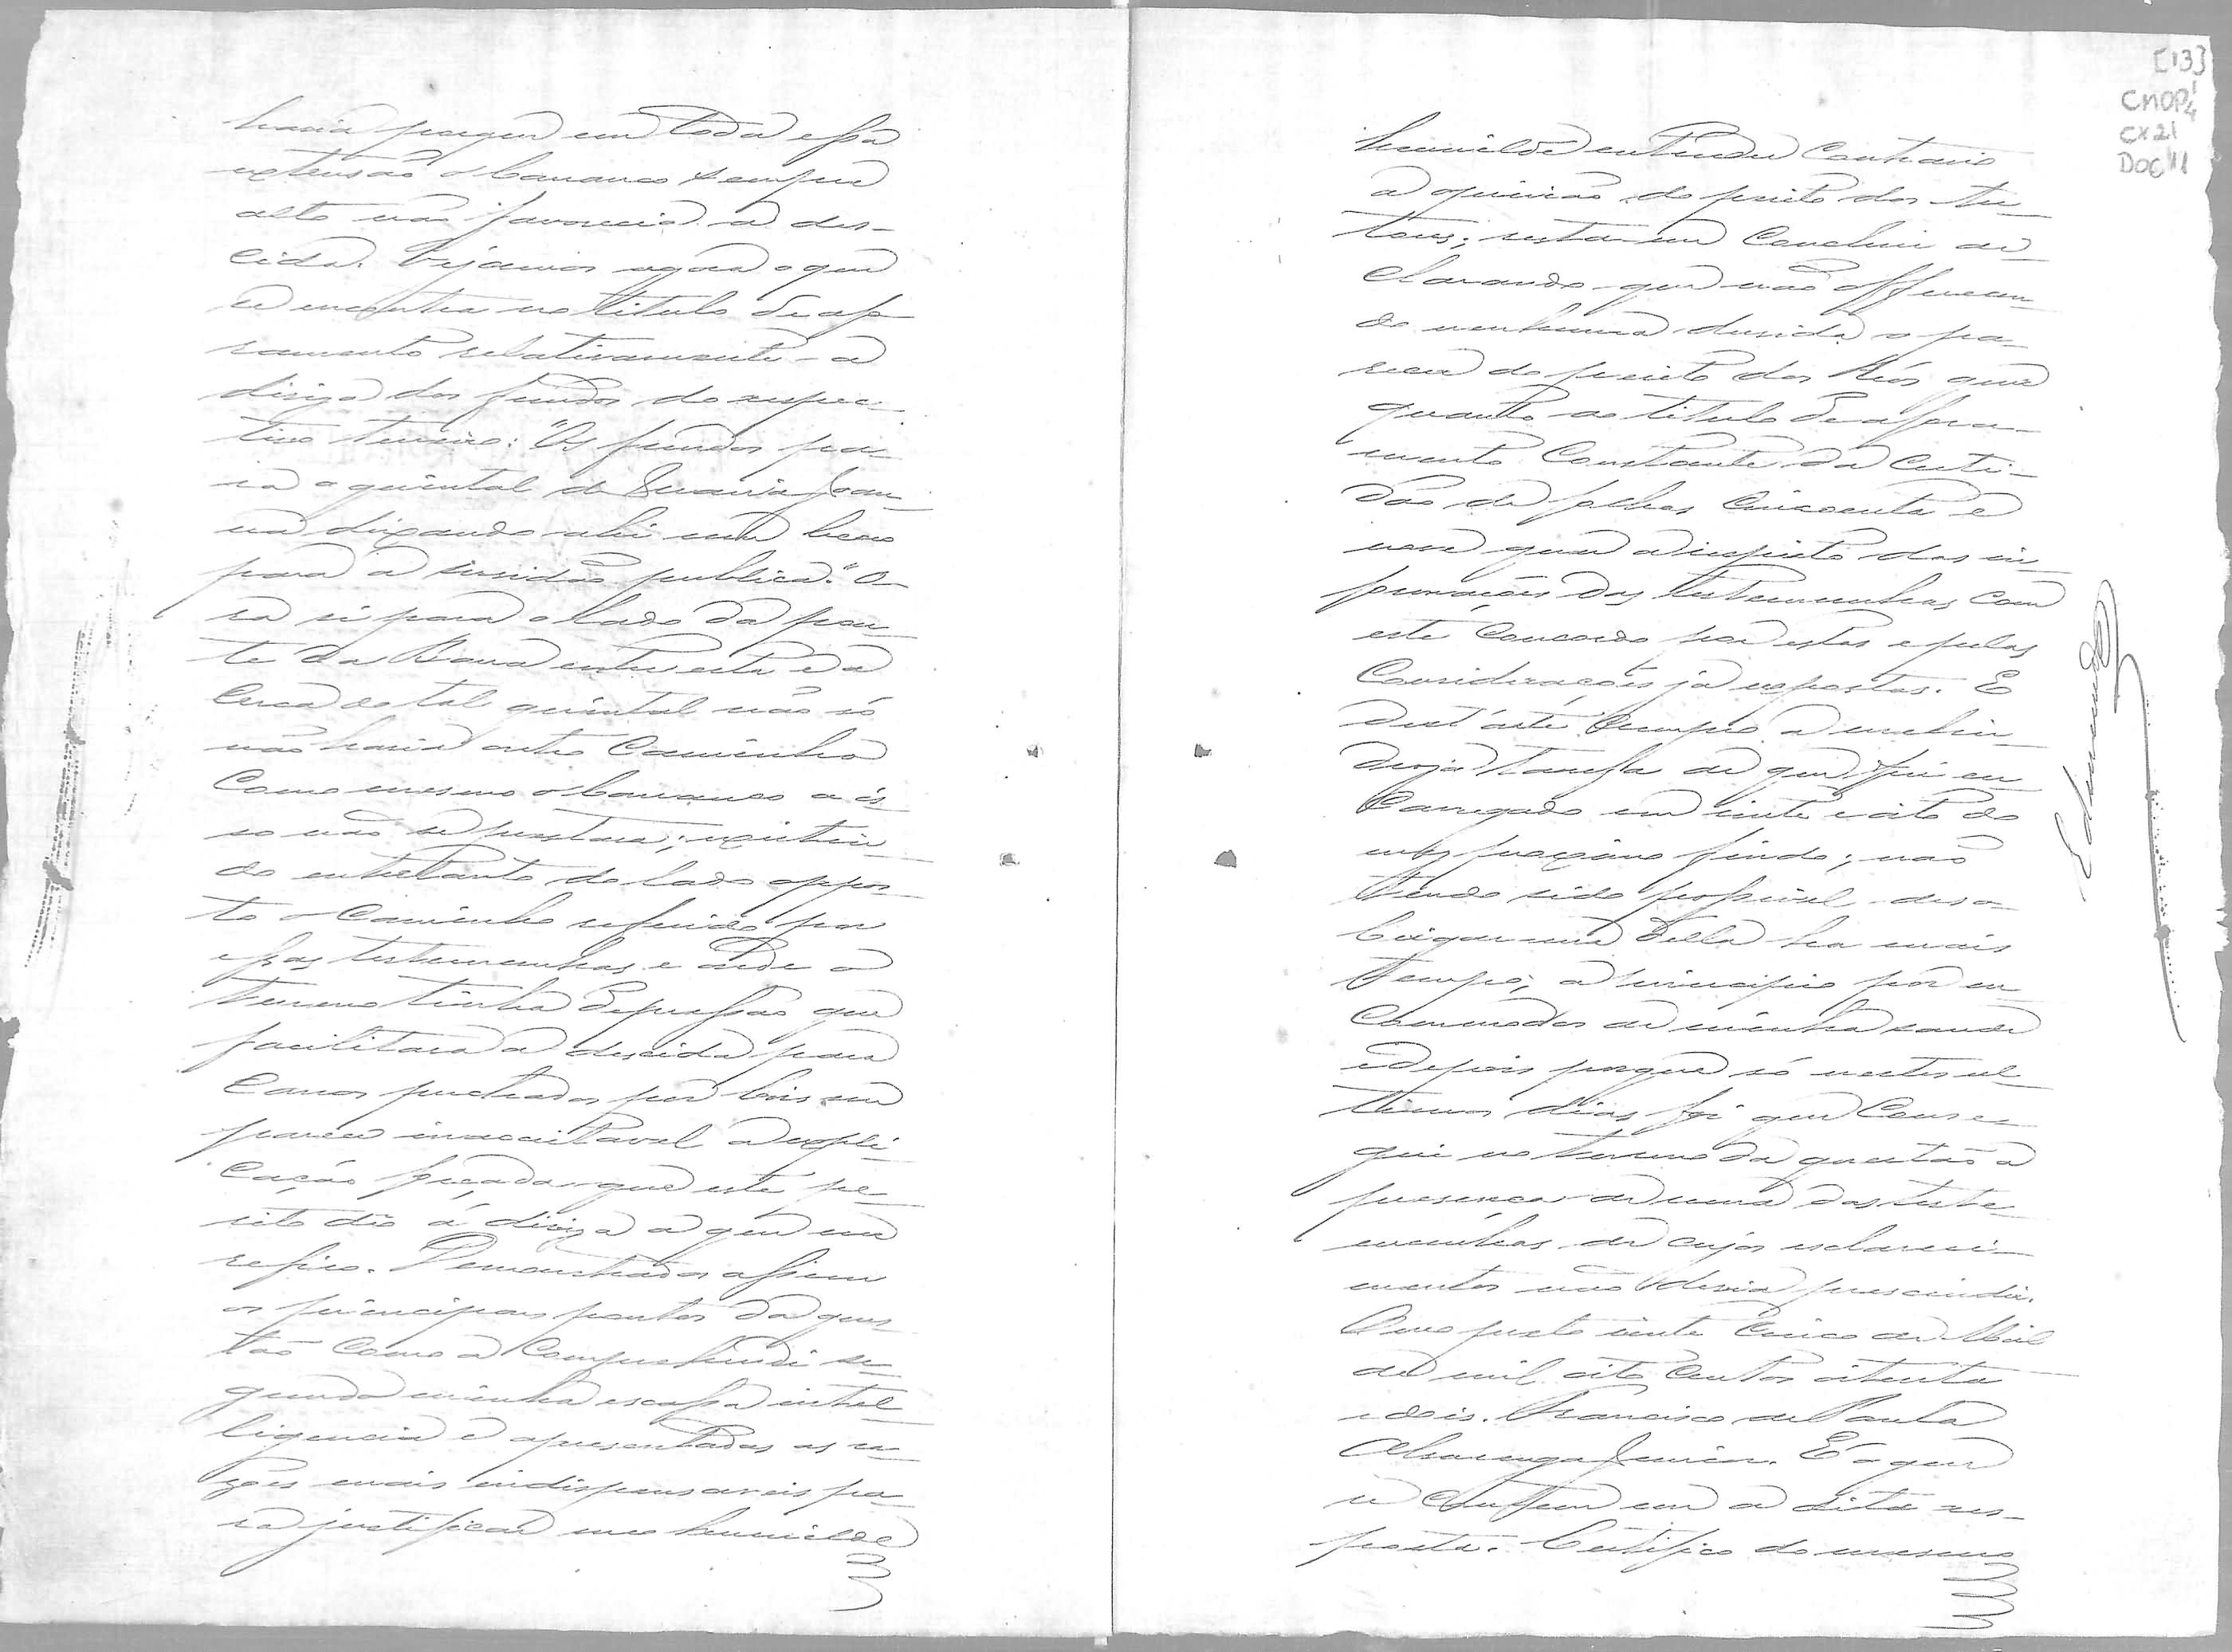 havia porque em toda essa
extensão o barranco sempre
alto não favorecia a des-
cida. Vejamos agora o que
se encontra no titulo de afo-
ramento relativamente a
diviza dos fundos do respec-
tivo terreno: "Os fundos pa-
ra o quintal de Maria Joan-
na dixando ahi um beco
para a servidão publica." O-
ra si para o lado da pon-
te da Barra entre esta e a
cerca do tal quintal não só
não havia outro caminho
como mesmo o barranco a is-
so não se prestava; existin-
do entretanto do lado oppos-
to o caminho referido por
essas testemunhas e onde o
terreno tinha depressão que
facilitava a descida para
carros puchados por bois me
parece inacceitavel a expli-
cação forçada que este pe-
rito dá á diviza a que me
refiro. Demonstrados assim
os principaes pontos da ques-
tão como a comprehendi se-
gundo minha escassa intel-
ligencia e apresentadas as ra-
zões mais indispensaveis pa-
ra justificar meu humilde
[13]
CMOP
CX21
DOC 11
humilde entender contrario
a opinião do perito dos Au-
tores; resta-me concluir de-
clarando que não offerecen-
do nenhuma duvida o pa-
recer do perito dos Réos quer
quanto ao titulo de afora-
mento constante da certi-
dão de folhas cincoenta e
nove quer a respeito das in-
formações das testemunhas com
este concordo por estas e pelas
considerações já expostas. E
dest'arte cumpro a melin-
droza tarefa de que fui en-
carregado em vinte e oito do
mez proximo findo; não
tendo sido possivel deso-
brigar me della ha mais
tempo; a principio por en-
commodos de minha saude
e depois porque só nestes ul-
timos dias foi que conse-
gui no terreno da questão a
presença de uma das teste-
munhas de cujos esclareci-
mentos não devia prescindir.
Ouro preto vinte cinco de Abril
de mil oito centos oitenta
e dois. Francisco de Paula
Alvarenga Junior. É o que
se contem em a dita res-
posta. Certifico do mesmo
Edmundo